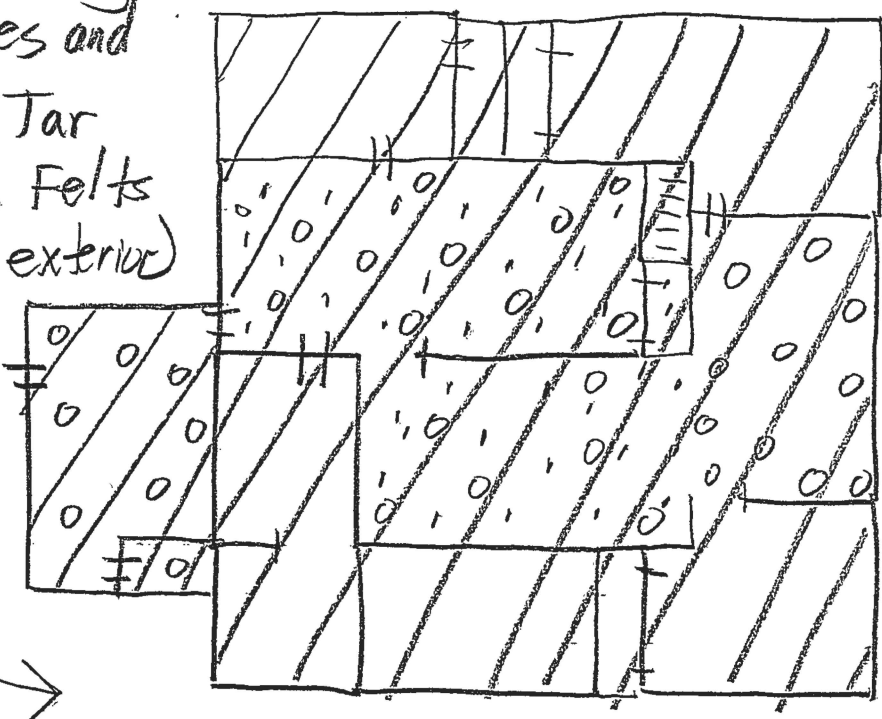 es and
Tar
Felts
exterior)